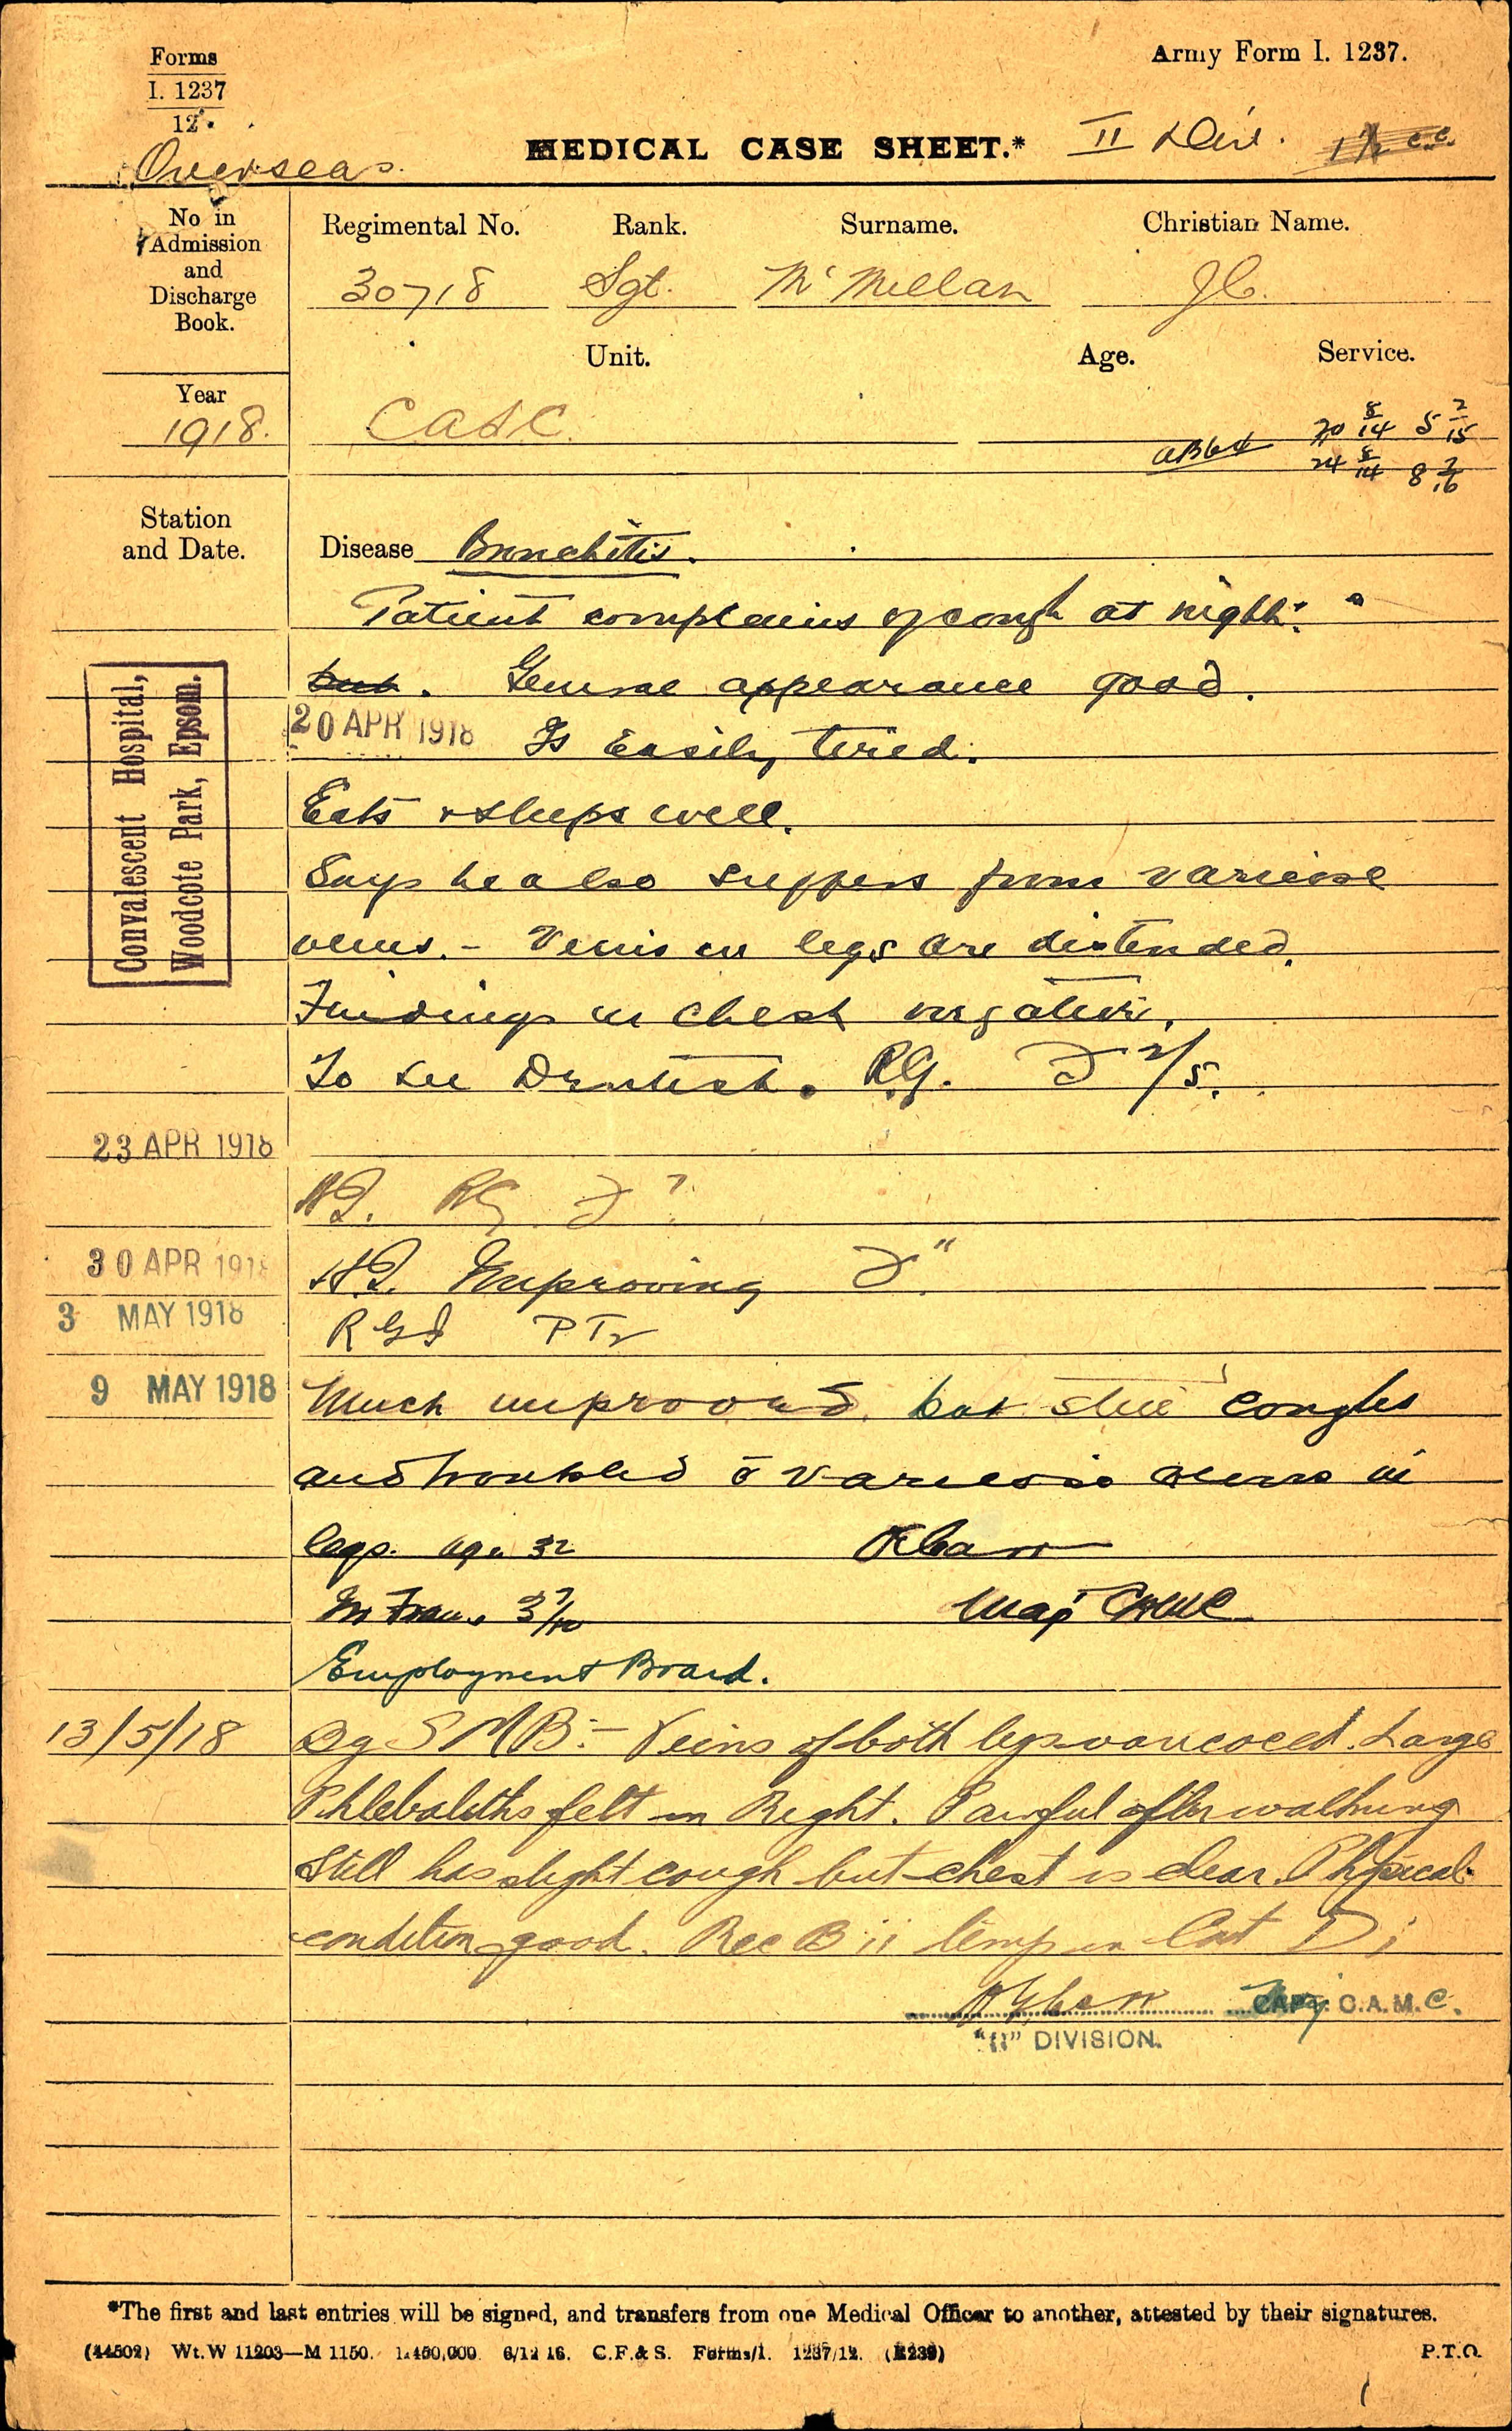 Forms
I. 1237
12
Army Form I. 1237.
Overseas.
MEDICAL CASE SHEET.* II Div.
No in Admission and Discharge Book.
Regimental No. Rank. Surname. Christian Name.
30718 Sgt. McMillan J C.
Unit. Age. Service.
Year
1918.
CASC.
AB64
20 8/14 5 2/15
24 8/14 8 2/16
Station and Date.
Disease Bronchitis.
Patient complains of cough at night.
but. General appearance good.
20 APR 1918 Is Easily tired.
Convalescent Hospital,
Woodcote Park, Epsom.
Eats & sleeps well.
Says he also suffers from varicose
veins. - Veins in legs are distended.
Findings in chest negative.
To see Dentist. RG. D 2/5.
23 APR 1918
D 7
30 APR 1918
Improving D"
3 MAY 1918
9 MAY 1918
Much improved, but still coughs
and troubled c̄ varicose veins in
legs. age 32
In France 3 7/10
Maj CAMC
Employment Board.
13/5/18
By S M B:- Veins of both legs varicosed. Large
Phleboliths felt in Right. Painful after walking
Still has slight cough but chest is clear. Physical
condition good. Rec B ii temp in Cat D i
CAPT. C.A.M.C.
Maj
"II" DIVISION.
*The first and last entries will be signed, and transfers from one Medical Officer to another, attested by their signatures.
(44502) Wt. W 11203—M 1150. 1,450,000 6/12 16. C.F. & S. Forms/I. 1237/12. (E239)
P.T.O.